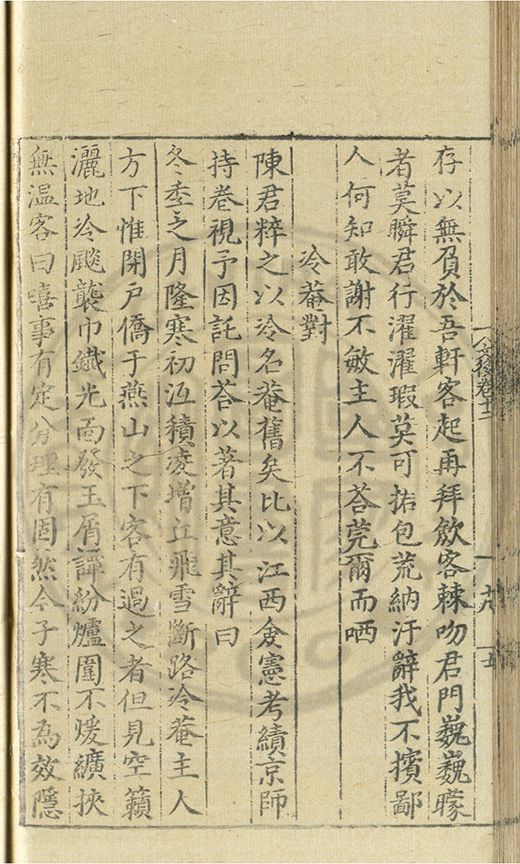 存以無負於吾軒客起再拜飲客棘吻君門巍巍矇
者莫瞬君行濯濯瑕莫可掂包荒納汙辭我不擯鄙
人何知敢謝不敏主人不荅莞爾而哂
冷菴對
陳君粹之以冷名菴舊矣比以江西僉憲考績京師
持卷視予因託問荅以著其意其辭曰
冬季之月隆寒初沍積凌增丘飛雪斷路冷菴主人
方下惟閉戶僑于燕山之下客有過之者但見空籟
灑地冷颷襲巾鐵光而發玉屑譚紛爐圍不煖纊挾
無溫客曰嘻事有定分理有固然今子寒不為效隱
卷十二
十九